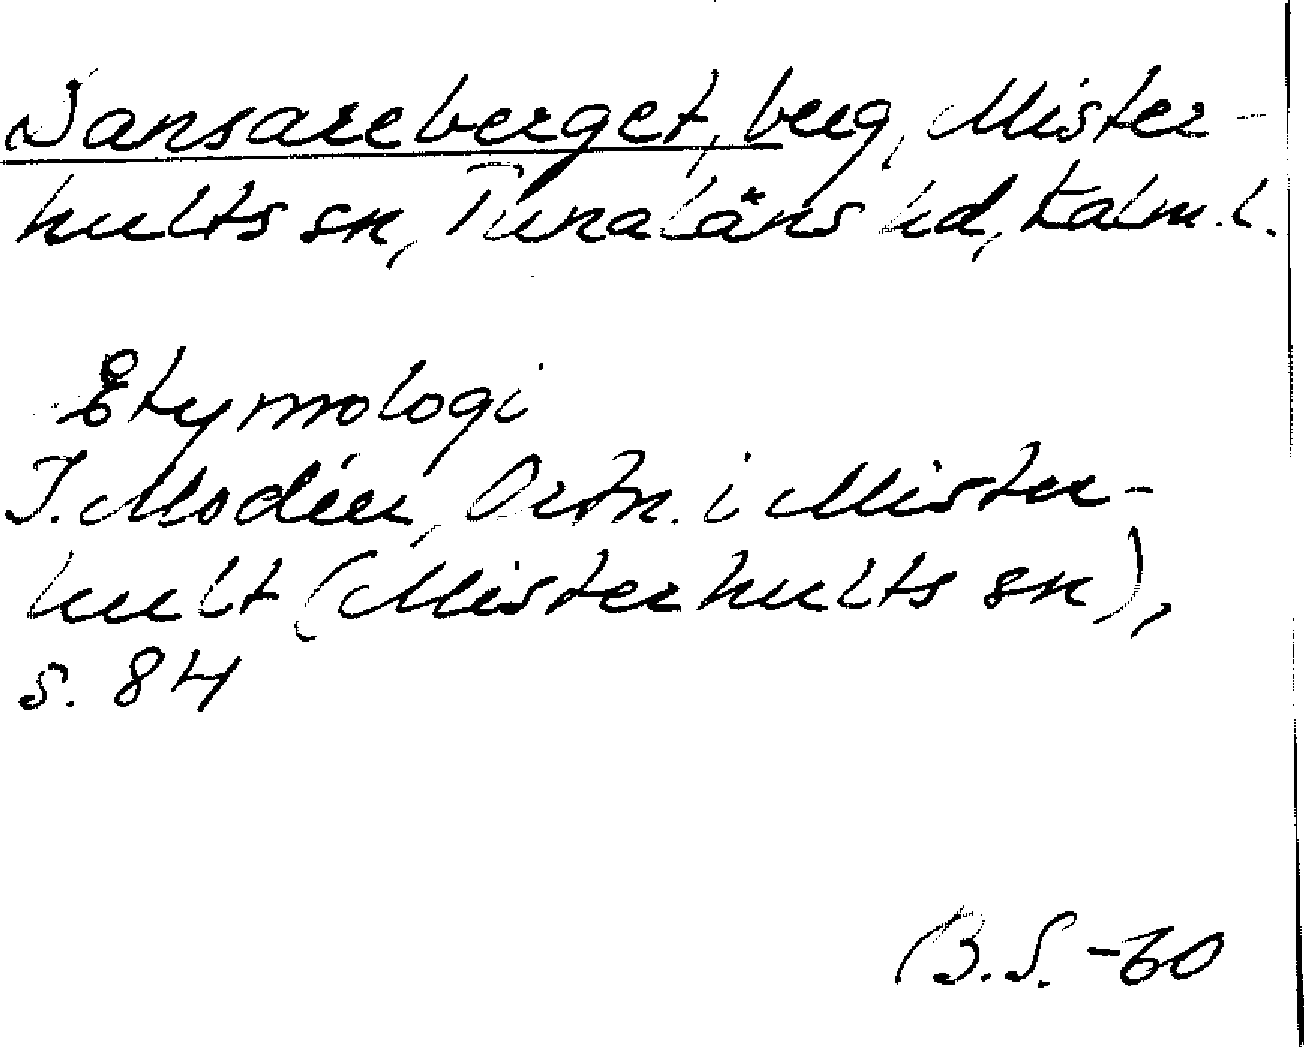 Dansareberget, berg, Mister-
hults sn, Tunaläns hd, Kalm. l.
Etymologi
I. Modéer, Ortn. i Mister-
hult (Misterhults sn),
s. 84
B.S. -60